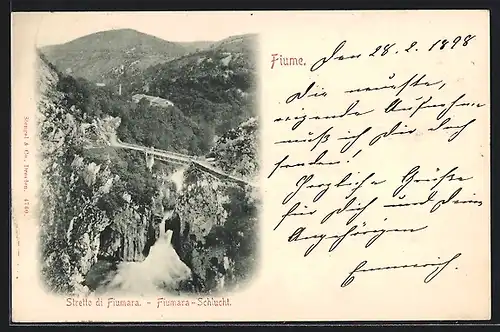 Fiume.
Den 28. 2. 1898
Die neueste,
reizende Aufnahme
muß ich Dir doch
senden!
Herzliche Grüße
für Dich und Deine
Angehörigen
Emmerich.
Stretto di Fiumara. - Fiumara-Schlucht.
Stengel & Co., Dresden. 4766.